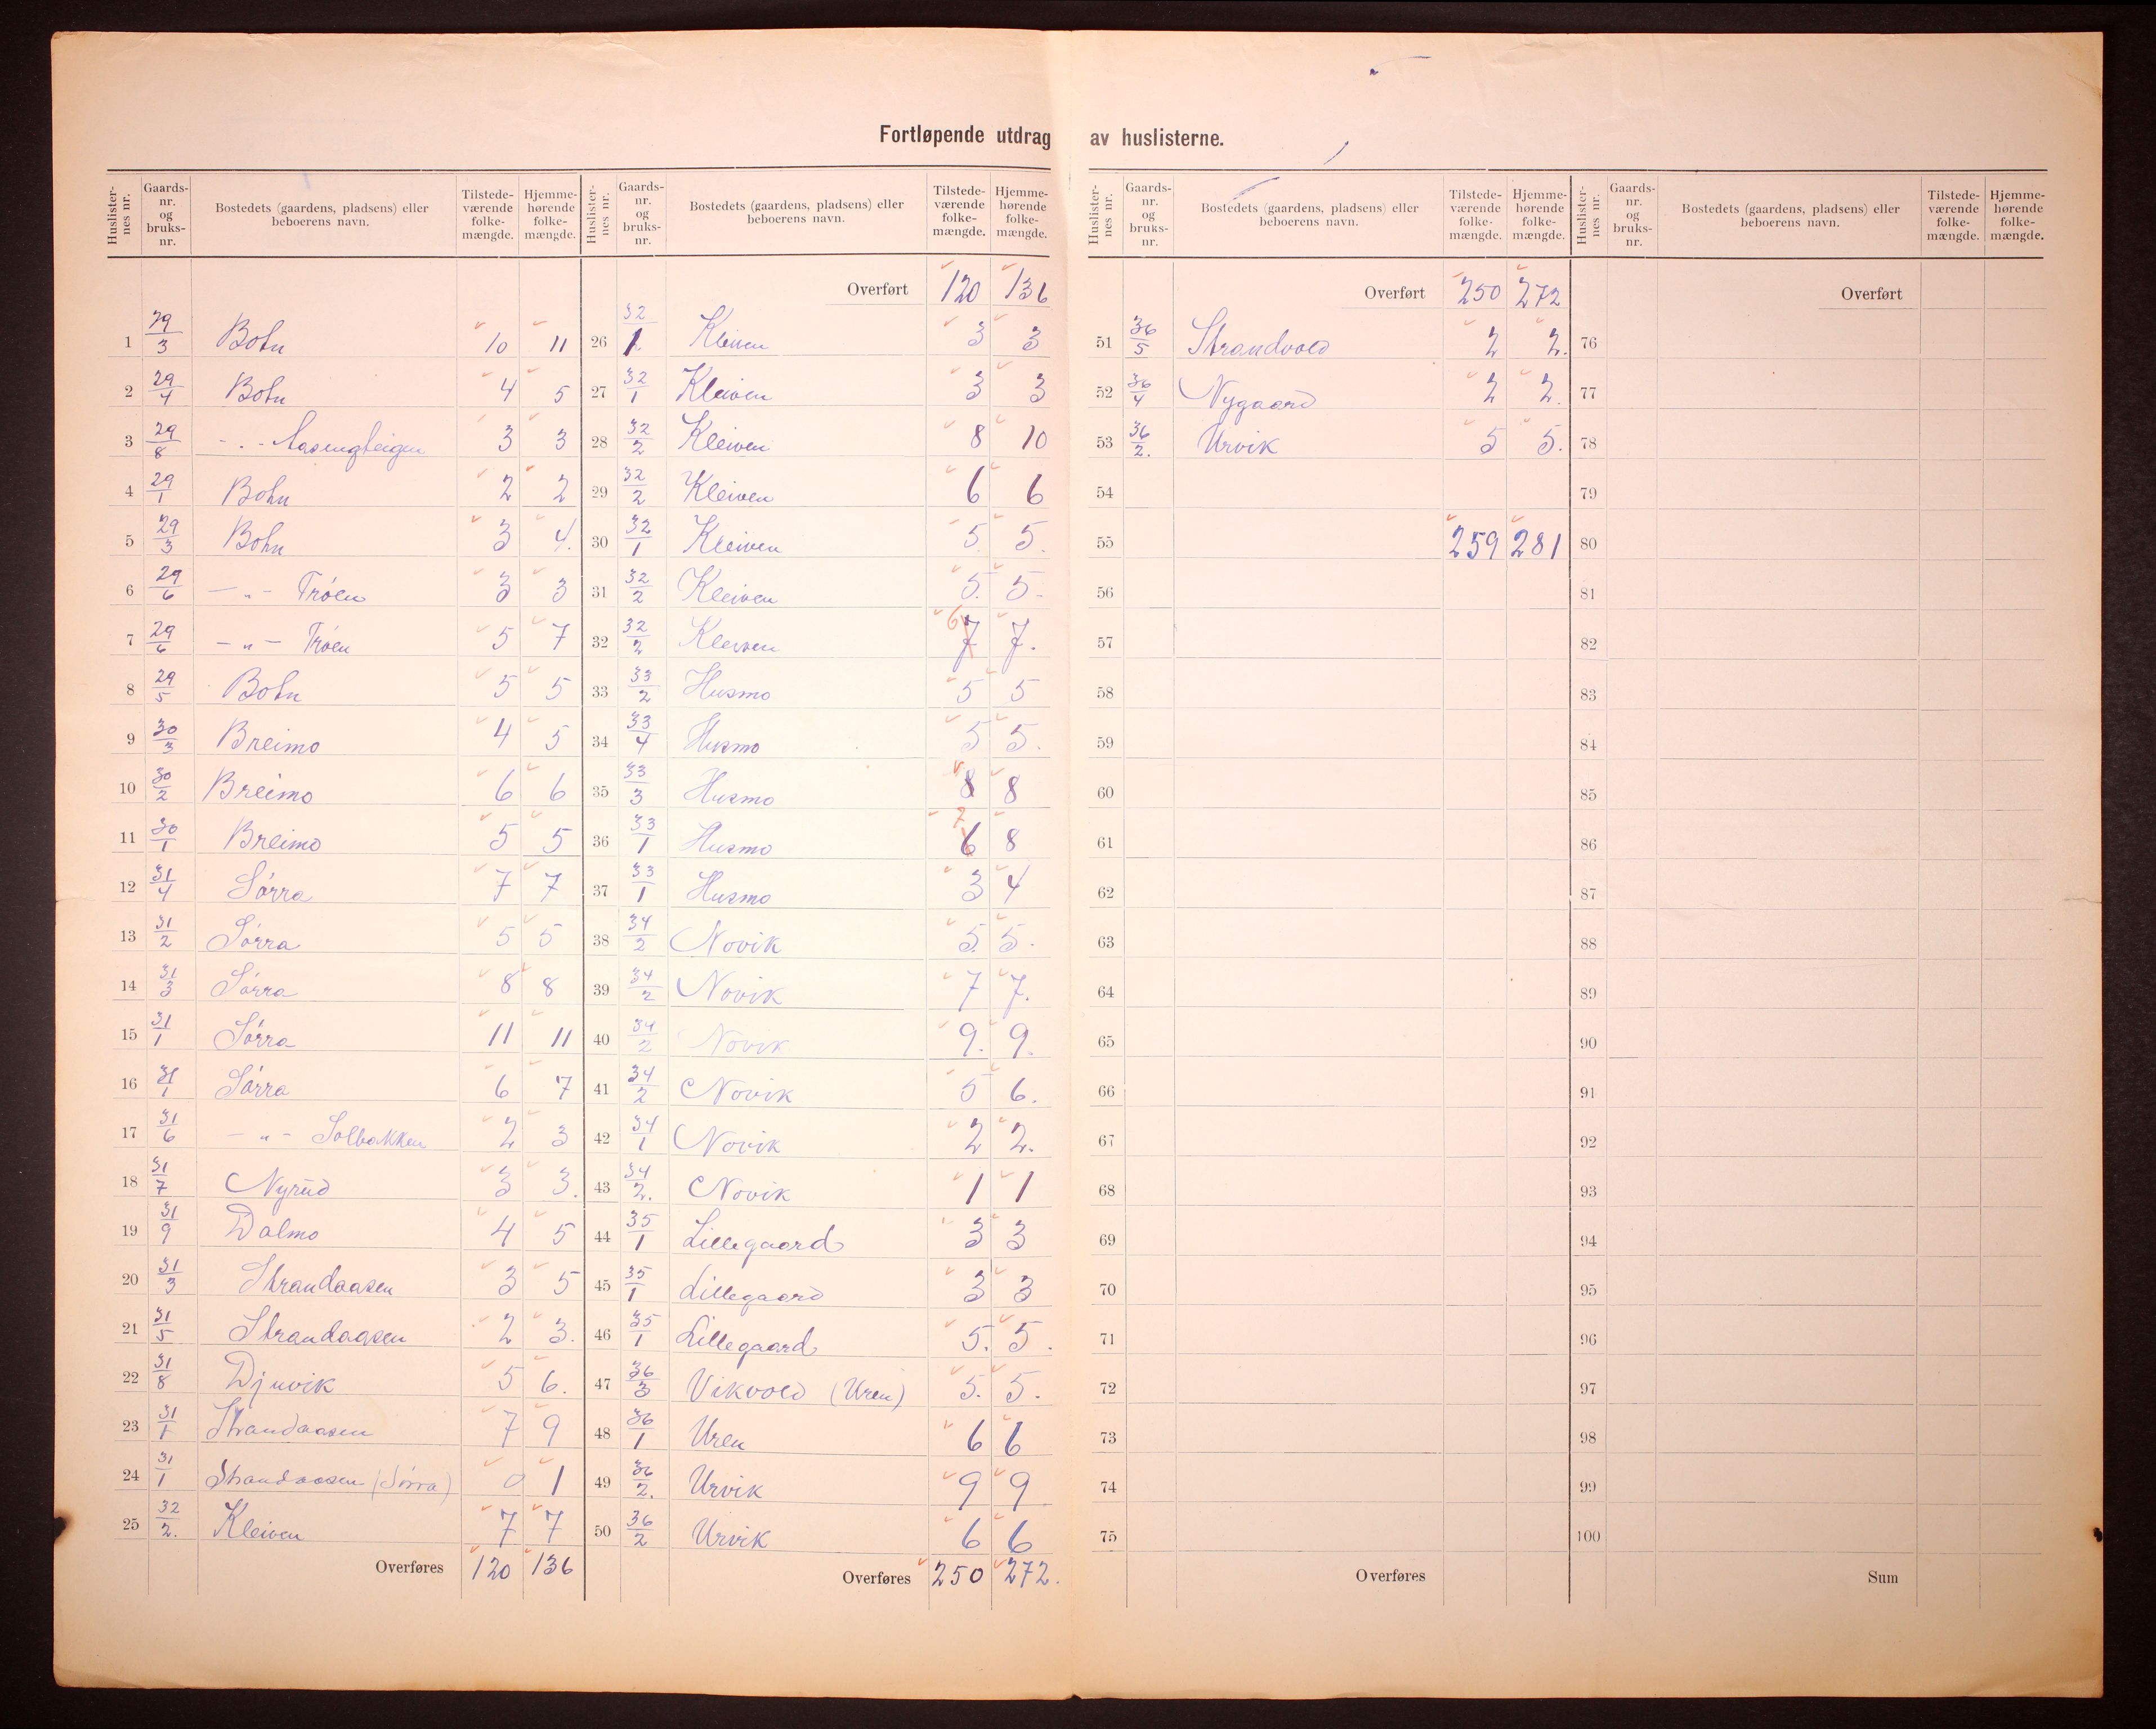 Fortløpende utdrag av huslisterne.
Huslisternes nr. Gaards-nr. og bruks-nr. Bostedets (gaardens, pladsens) eller beboerens navn. Tilstede-værende folke-mængde. Hjemme-hørende folke-mængde.
1 29/3 Bohn 10 11
2 29/4 Bohn 4 5
3 29/8 - . - Aasengteigen 3 3
4 29/1 Bohn 2 2
5 29/3 Bohn 3 4.
6 29/6 — „ - Trøen 3 3
7 29/6 — „ — Trøen 5 7
8 29/5 Bohn 5 5
9 30/3 Breimo 4 5
10 30/2 Breimo 6 6
11 30/1 Breimo 5 5
12 31/4 Sørra 7 7
13 31/2 Sørra 5 5
14 31/3 Sørra 8 8
15 31/1 Sørra 11 11
16 31/1 Sørra 6 7
17 31/6 — „ - Solbakken 2 3
18 31/7 Nyrud 3 3.
19 31/9 Dalmo 4 5
20 31/3 Strandaasen 3 5
21 31/5 Strandaasen 2 3.
22 31/8 Djuvik 5 6.
23 31/1 Strandaasen 7 9
24 31/1 Strandaasen (Sørra) 0 1
25 32/2. Kleiven 7 7
Overføres 120 136
Huslisternes nr. Gaards-nr. og bruks-nr. Bostedets (gaardens, pladsens) eller beboerens navn. Tilstede-værende folke-mængde. Hjemme-hørende folke-mængde.
Overført 120 136
26 32/1 Kleiven 3 3
27 32/1 Kleiven 3 3
28 32/2 Kleiven 8 10
29 32/2 Kleiven 6 6
30 32/1 Kleiven 5. 5.
31 32/2 Kleiven 5. 5.
32 32/2 Kleiven 6 7 7.
33 33/2 Husmo 5 5
34 33/4 Husmo 5 5.
35 33/3 Husmo 8 8
36 33/1 Husmo 7 6 8
37 33/1 Husmo 3 4
38 34/2 Novik 5. 5.
39 34/2 Novik 7 7.
40 34/2 Novik 9. 9.
41 34/2 Novik 5 6.
42 34/1 Novik 2 2.
43 34/2. Novik 1 1
44 35/1 Lillegaard 3 3
45 35/1 Lillegaard 3 3
46 35/1 Lillegaard 5. 5.
47 36/3 Vikvold (Uren) 5. 5.
48 36/1 Uren 6 6
49 36/2. Urvik 9 9
50 36/2 Urvik 6 6
Overføres 250 272.
Huslisternes nr. Gaards-nr. og bruks-nr. Bostedets (gaardens, pladsens) eller beboerens navn. Tilstede-værende folke-mængde. Hjemme-hørende folke-mængde.
Overført 250 272
51 36/5 Strandvold 2 2.
52 36/4 Nygaard 2 2.
53 36/2. Urvik 5 5.
54
55 259 281
56
57
58
59
60
61
62
63
64
65
66
67
68
69
70
71
72
73
74
75
Overføres
Huslisternes nr. Gaards-nr. og bruks-nr. Bostedets (gaardens, pladsens) eller beboerens navn. Tilstede-værende folke-mængde. Hjemme-hørende folke-mængde.
Overført
76
77
78
79
80
81
82
83
84
85
86
87
88
89
90
91
92
93
94
95
96
97
98
99
100
Sum